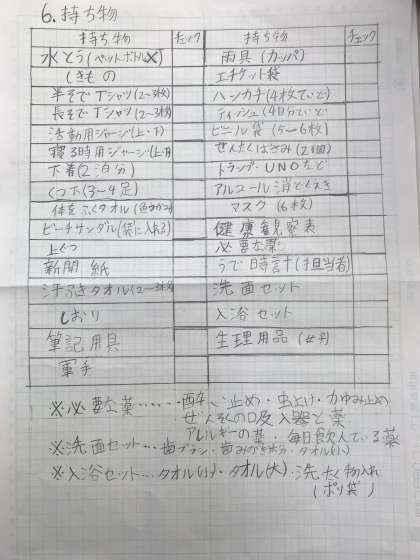 6. 持ち物
持ち物 チェック 持ち物 チェック
水とう(ペットボトル✕) 雨具(カッパ)
しきもの エチケット袋
半そでTシャツ(2~3枚) ハンカチ(4枚ていど)
長そでTシャツ(2~3枚) ティッシュ(4日分ていど)
活動用ジャージ(上・下) ビニール袋(5~6枚)
寝る時用ジャージ(上・下) せんたくばさみ(2個)
下着(2泊分) トランプ・UNOなど
くつ下(3~4足) アルコール消どくえき
体をふくタオル マスク(6枚)
ビーチサンダル(袋に入れる) 健康観察表
上ぐつ 必要な薬
新聞紙 うで時計(担当者)
汗ふきタオル(2~3枚) 洗面セット
しおり 入浴セット
筆記用具 生理用品(女子)
軍手
※必要な薬……酔い止め・虫よけ・かゆみ止め
ぜんそくの吸入器と薬
アレルギーの薬・毎日飲んでいる薬
※洗面セット…歯ブラシ・歯みがき粉・タオル(小)
※入浴セット…タオル(小)・タオル(大)・洗たく物入れ
(ポリ袋)